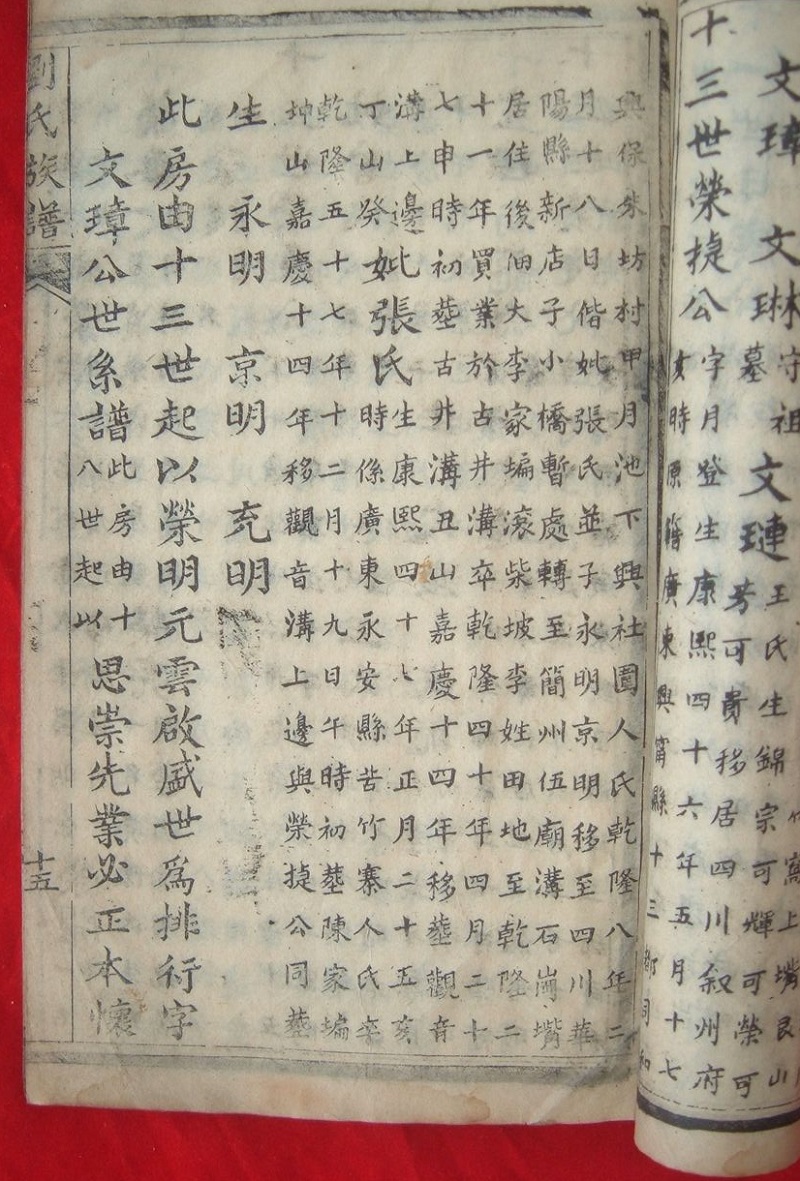 文瑋 文琳 守祖墓 文璉 王氏生錦宗可輝可榮可
芳可貴移居四川叙州府
十三世榮捷公 字月登生康熙四十六年五月十七
時原籍廣東興甯縣十三都同和
興保朱坊村甲月池下興社圍人氏乾隆八年二
月十八日偕妣張氏並子永明京明移至四川華
陽縣新店子小橋暫處轉至簡州伍廟溝石崗嘴
居住後佃大李家塥滾柴坡李姓田地至乾隆二
十一年買業於古井溝卒乾隆四十年四月二十
七申時初塟古井溝丑山嘉慶十四年移塟觀音
溝上邊 妣張氏 生康熙四十七年正月二十五亥
丁山癸 時係廣東永安縣苦竹寨人氏卒
乾隆五十七年十二月十九日午時初塟陳家塥
坤山嘉慶十四年移觀音溝上邊與榮捷公同塟
生 永明 京明 充明
此房由十三世起以榮明元雲啟盛世為排行字
文璋公世系譜 此房由十八世起以 思崇先業必正本懷
劉氏族譜 十五